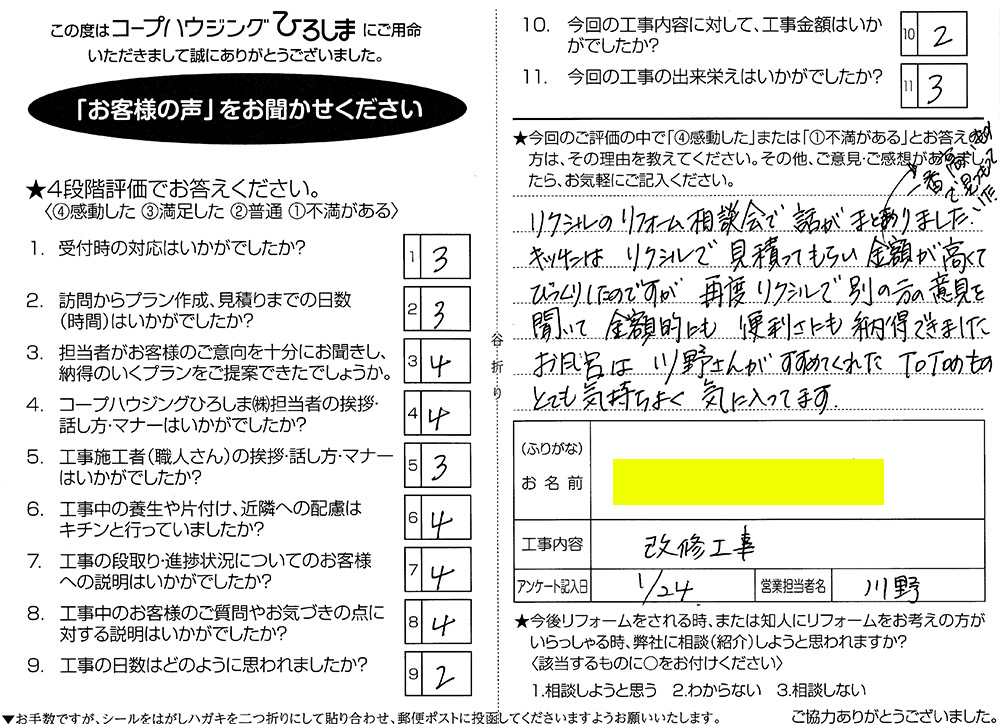 この度はコープハウジングひろしまにご用命
いただきまして誠にありがとうございました。
「お客様の声」をお聞かせください
★4段階評価でお答えください。
〈④感動した ③満足した ②普通 ①不満がある〉
1. 受付時の対応はいかがでしたか?
1 3
2. 訪問からプラン作成、見積りまでの日数
(時間)はいかがでしたか?
2 3
3. 担当者がお客様のご意向を十分にお聞きし、
納得のいくプランをご提案できたでしょうか。
3 4
4. コープハウジングひろしま㈱担当者の挨拶・
話し方・マナーはいかがでしたか?
4 4
5. 工事施工者(職人さん)の挨拶・話し方・マナー
はいかがでしたか?
5 3
6. 工事中の養生や片付け、近隣への配慮は
キチンと行っていましたか?
6 4
7. 工事の段取り・進捗状況についてのお客様
への説明はいかがでしたか?
7 4
8. 工事中のお客様のご質問やお気づきの点に
対する説明はいかがでしたか?
8 4
9. 工事の日数はどのように思われましたか?
9 2
▼お手数ですが、シールをはがしハガキを二つ折りにして貼り合わせ、郵便ポストに投函してくださいますようお願いいたします。
谷折り
10. 今回の工事内容に対して、工事金額はいか
がでしたか?
10 2
11. 今回の工事の出来栄えはいかがでしたか?
11 3
★今回のご評価の中で「④感動した」または「①不満がある」とお答えの
方は、その理由を教えてください。その他、ご意見・ご感想がありまし
たら、お気軽にご記入ください。
一番高い
リクシルのリフォーム相談会で話がまとまりました。
キッチンは リクシルで 見積ってもらい 金額が高くて
びっくりしたのですが 再度リクシルで別の方の意見を
聞いて 金額的にも 便利さにも 納得できました
お風呂は 川野さんがすすめてくれた TOTOのもの
とても気持ちよく 気に入ってます。
(ふりがな)
お名前
工事内容 改修工事
アンケート記入日 1/24 営業担当者名 川野
★今後リフォームをされる時、または知人にリフォームをお考えの方が
いらっしゃる時、弊社に相談(紹介)しようと思われますか?
〈該当するものに○をお付けください〉
1.相談しようと思う 2.わからない 3.相談しない
ご協力ありがとうございました。